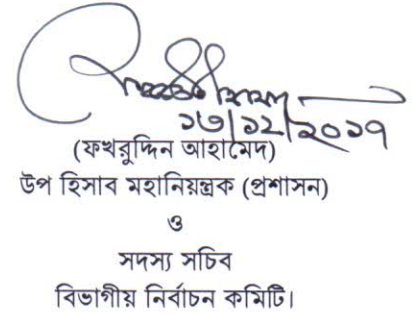 ১৩/১২/২০১৭
(ফখরুদ্দিন আহামেদ)
উপ হিসাব মহানিয়ন্ত্রক (প্রশাসন)
ও
সদস্য সচিব
বিভাগীয় নির্বাচন কমিটি।